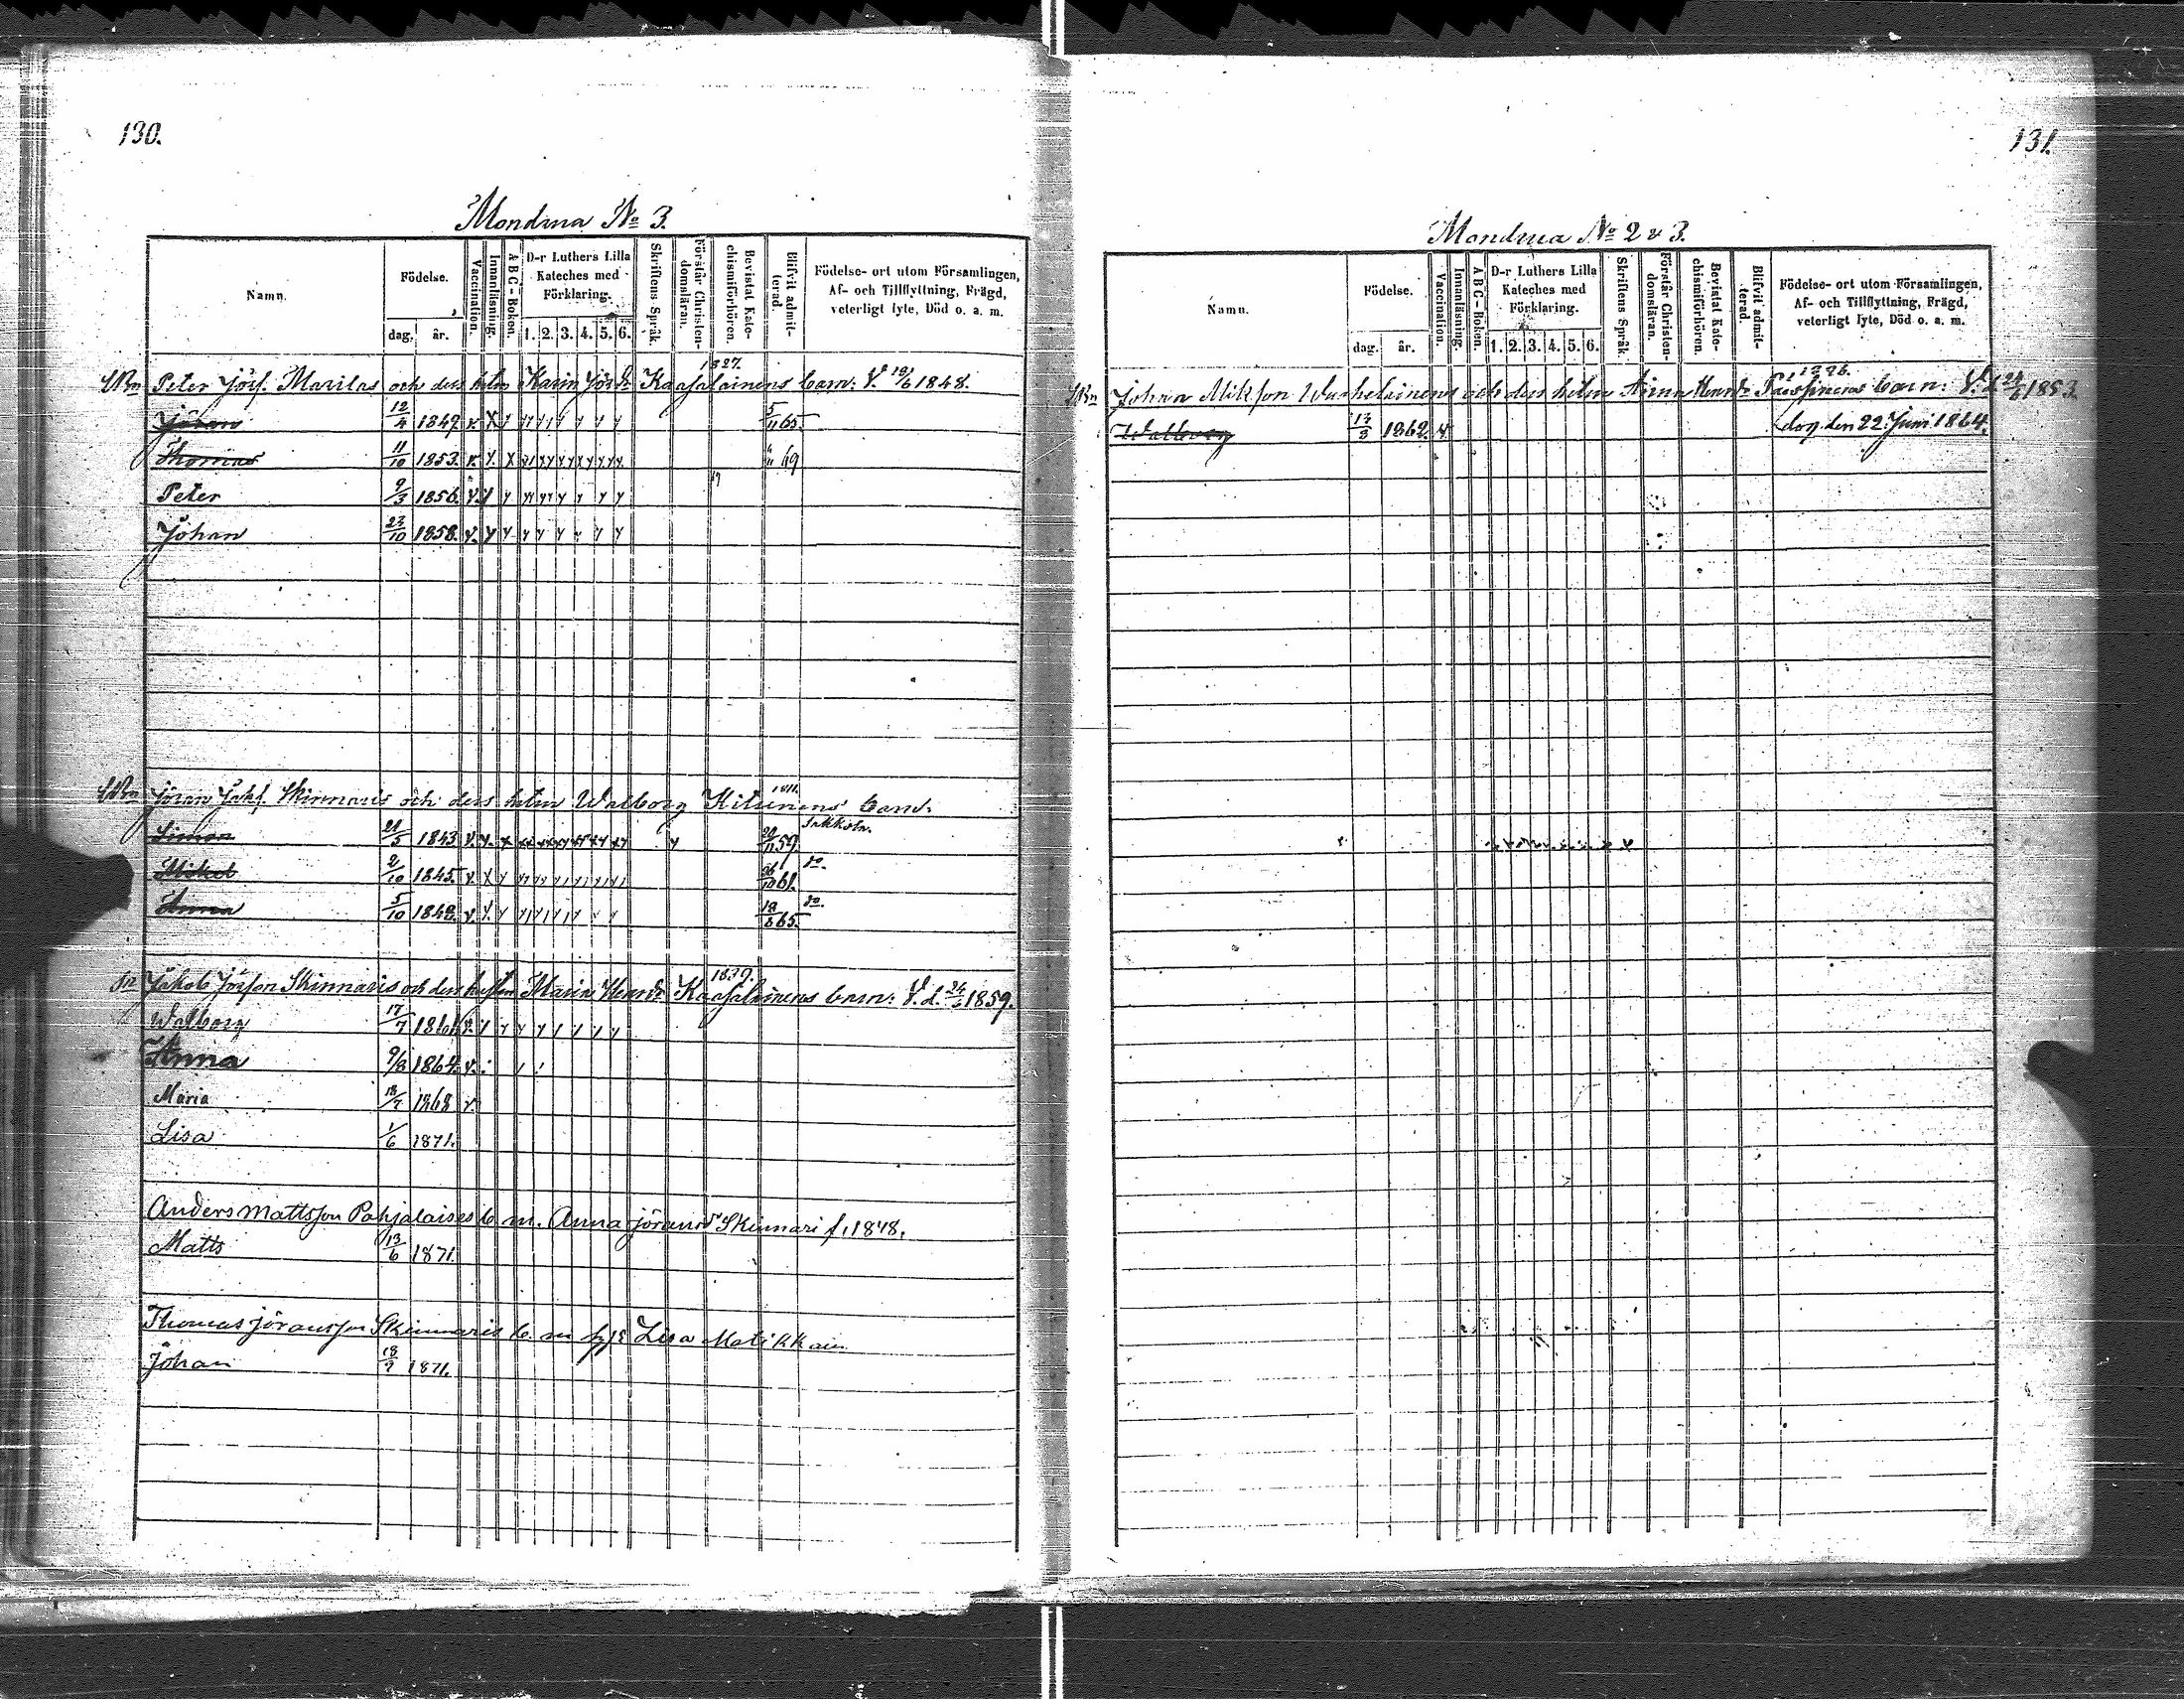 130.
Mondrua No 3.
Namn.
Födelse.
dag. år.
Vaccination.
Innanläsning.
A B C - Boken.
D-r Luthers Lilla Kateches med Förklaring.
1. 2. 3. 4. 5. 6.
Skriftens Språk.
Förstår Christendomsläran.
Bevistat Katechismiförhören.
Blifvit admitterad.
Födelse- ort utom Församlingen, Af- och Tillflyttning, Frägd, veterligt lyte, Död o. a. m.
1827.
Peter Jörs. Marilas och dess hstm Karin Jörsdr Kaajalainens barn: V. 19/6 1848.
Jöran 12/4 1849. v. 5/11 65.
Thomas 11/10 1853. v. 69
Peter 9/3 1856. v.
Johan 23/10 1858. v.
1811.
Jöran Jaks. Skinnaris och dess hstm Walborg Kitunens barn.
Simon 21/5 1843 v. 59. Sakkola.
Mikel 2/10 1845. v. 26/10 61. do.
Anna 5/10 1848. v. 18/6 65. do.
1839.
Jakob Jörsson Skinnaris och dess hustru Maria Henrdr Kaajalainens barn: V. d. 26/6 1859.
Walborg 17/7 1861 v.
Anna 9/8 1864. v.
Maria 13/7 1868 v.
Lisa 1/6 1871.
Anders Mattsson Pohjalaises b. m. Anna Jöransdr Skinnari f. 1848.
Matts 13/6 1871.
Thomas Jöransson Skinnaris b. m Lisa Matikkain
Johan 18/9 1871.
131.
Mondrua No 2 & 3.
Namn.
Födelse.
dag. år.
Vaccination.
Innanläsning.
A B C - Boken.
D-r Luthers Lilla Kateches med Förklaring.
1. 2. 3. 4. 5. 6.
Skriftens Språk.
Förstår Christendomsläran.
Bevistat Katechismiförhören.
Blifvit admitterad.
Födelse- ort utom Församlingen, Af- och Tillflyttning, Frägd, veterligt lyte, Död o. a. m.
Johan Mikson och dess hstm Anna Henrdr Paossinens barn: V. d. 24/6 1853.
Walborg 17/3 1862. v. dog den 22 Juni 1864.